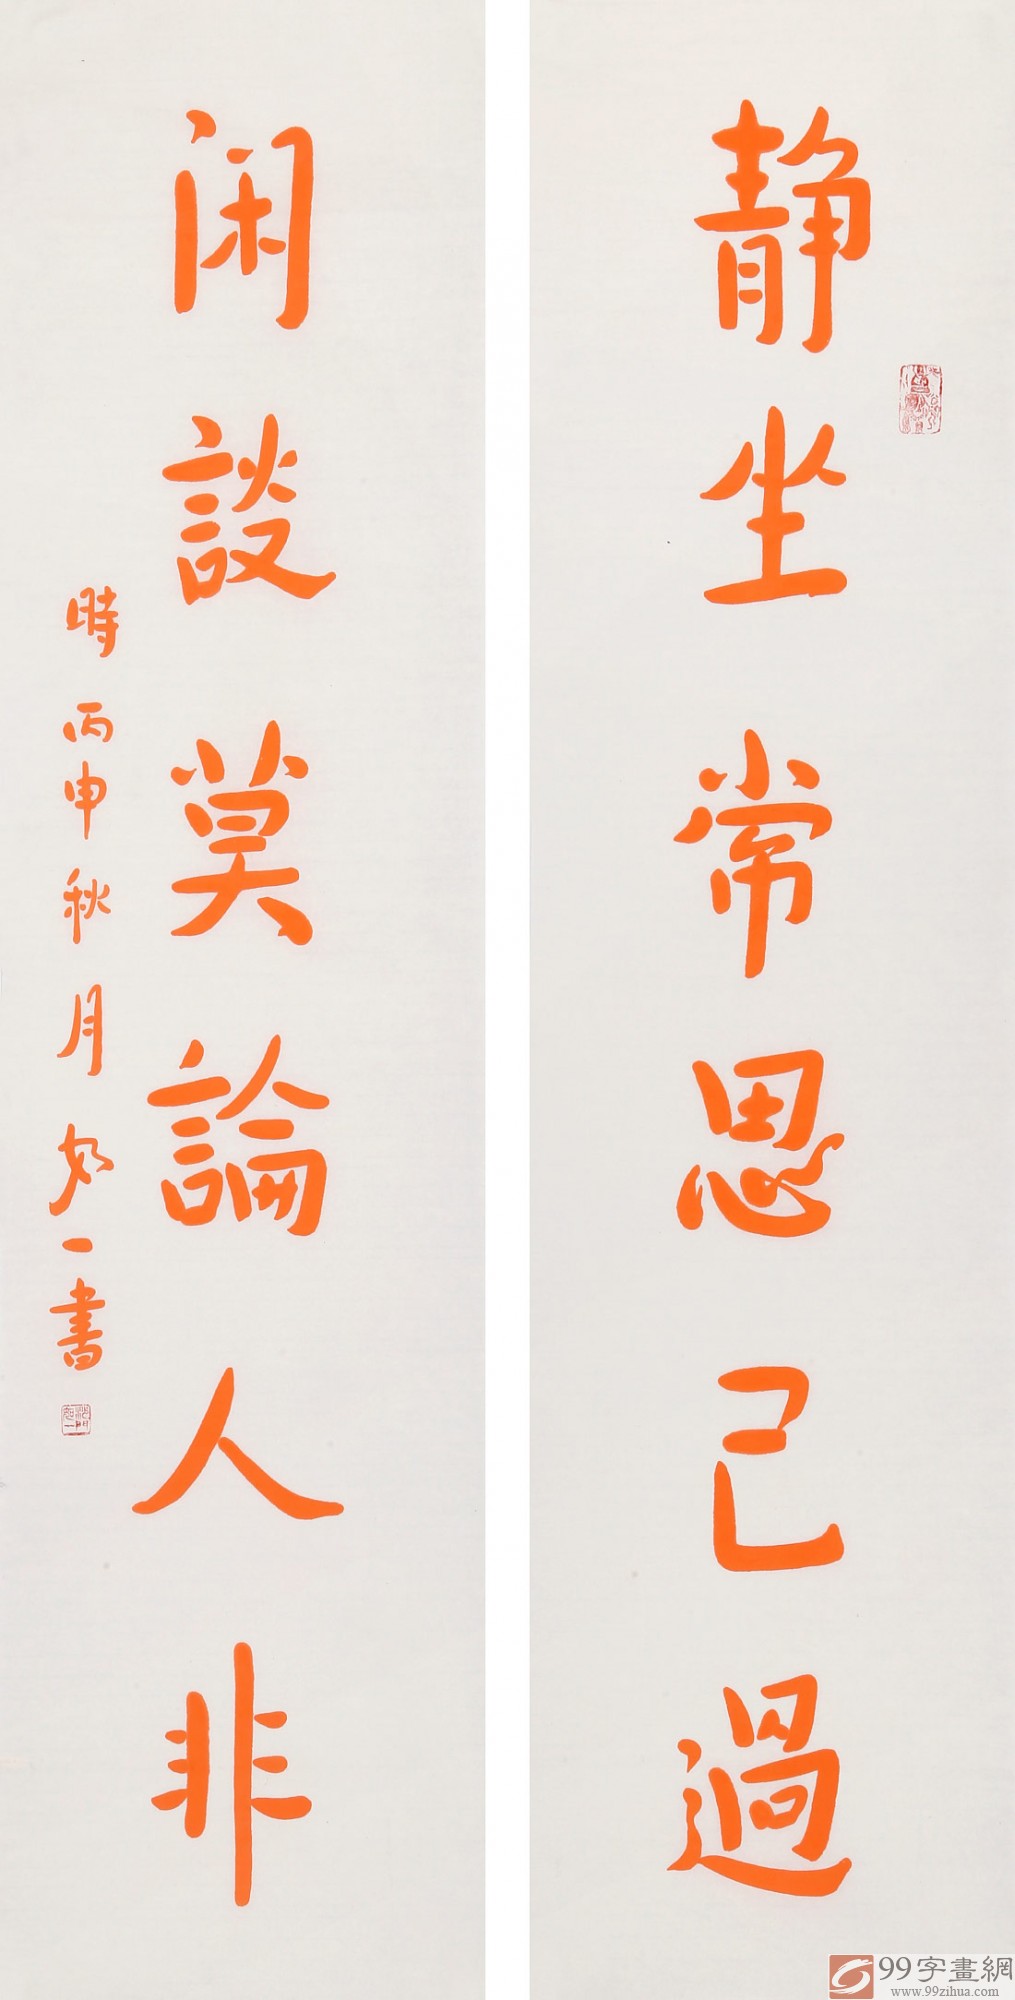 静坐常思己過
闲談莫論人非
時丙申秋月如一書
99字畫網
www.99zihua.com